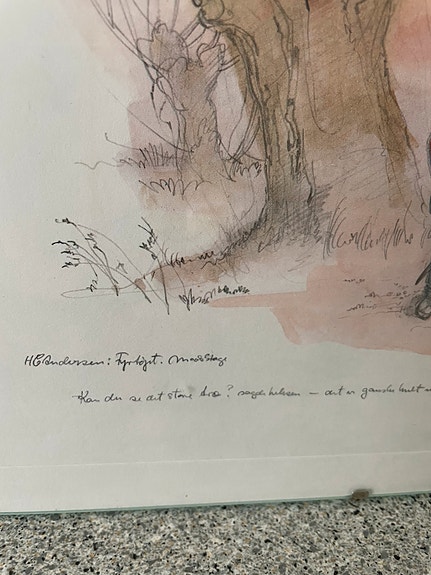 HC Andersen: Fyrtøjet.
Kan du se det store træ? sagde heksen — det er ganske hult